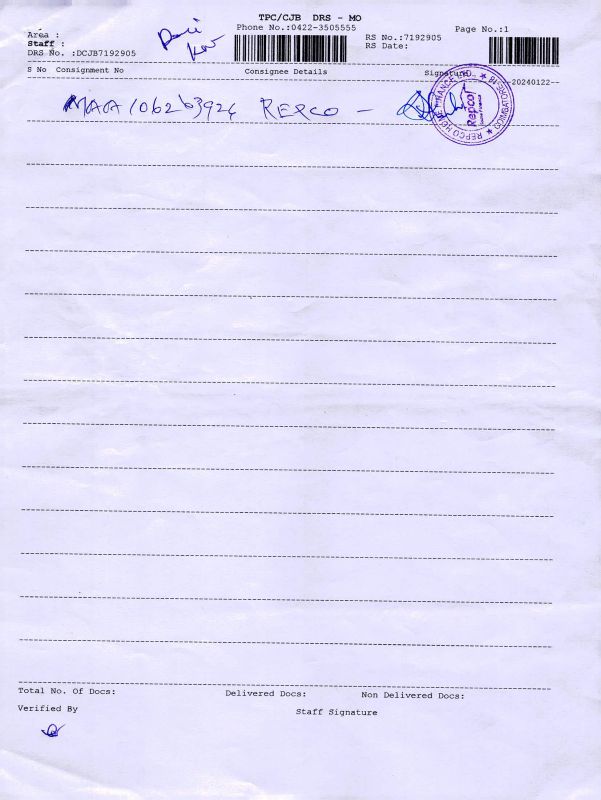 TPC/CJB DRS - MO
Phone No.:0422-3505555
Page No.:1
Area :
Staff :
DRS No. :DCJB7192905
RS No.:7192905
RS Date:
S No Consignment No Consignee Details Signature
--20240122--
MAA106263924 REPCO -
REPCO HOME FINANCE LTD. ★ COIMBATORE-18 ★
Repco
Total No. Of Docs: Delivered Docs: Non Delivered Docs:
Verified By Staff Signature